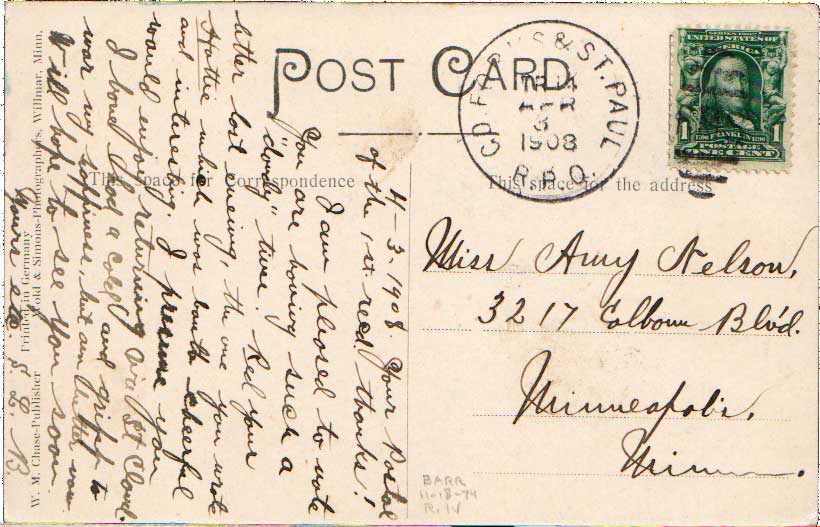 POST CARD
This space for correspondence
This space for the address
GD. FORKS & ST. PAUL
TR 14
APR
3
1908
R.P.O.
SERIES 1902
UNITED STATES OF
AMERICA
1706 FRANKLIN 1790
POSTAGE
1 ONE CENT 1
Miss Amy Nelson,
3217 Colburn Blv'd.
Minneapolis,
Minn.
4-3-1908. Your Postal
of the 1st. rec'd thanks!
I am pleased to note
You are having such a
"dandy" time. Rec'd your
letter last evening, the one you wrote
Hattie which was both cheerful
and interesting. I presume you
would enjoy returning via St Cloud.
I have had a cold and gripp to
war my happiness, but am better now
Will hope to see you soon
Yours etc. S. L. B.
W. M. Chase-Publisher
Printed in Germany
Wold & Simons-Photographers, Willmar, Minn.
BARR
11-18-74
R. IV